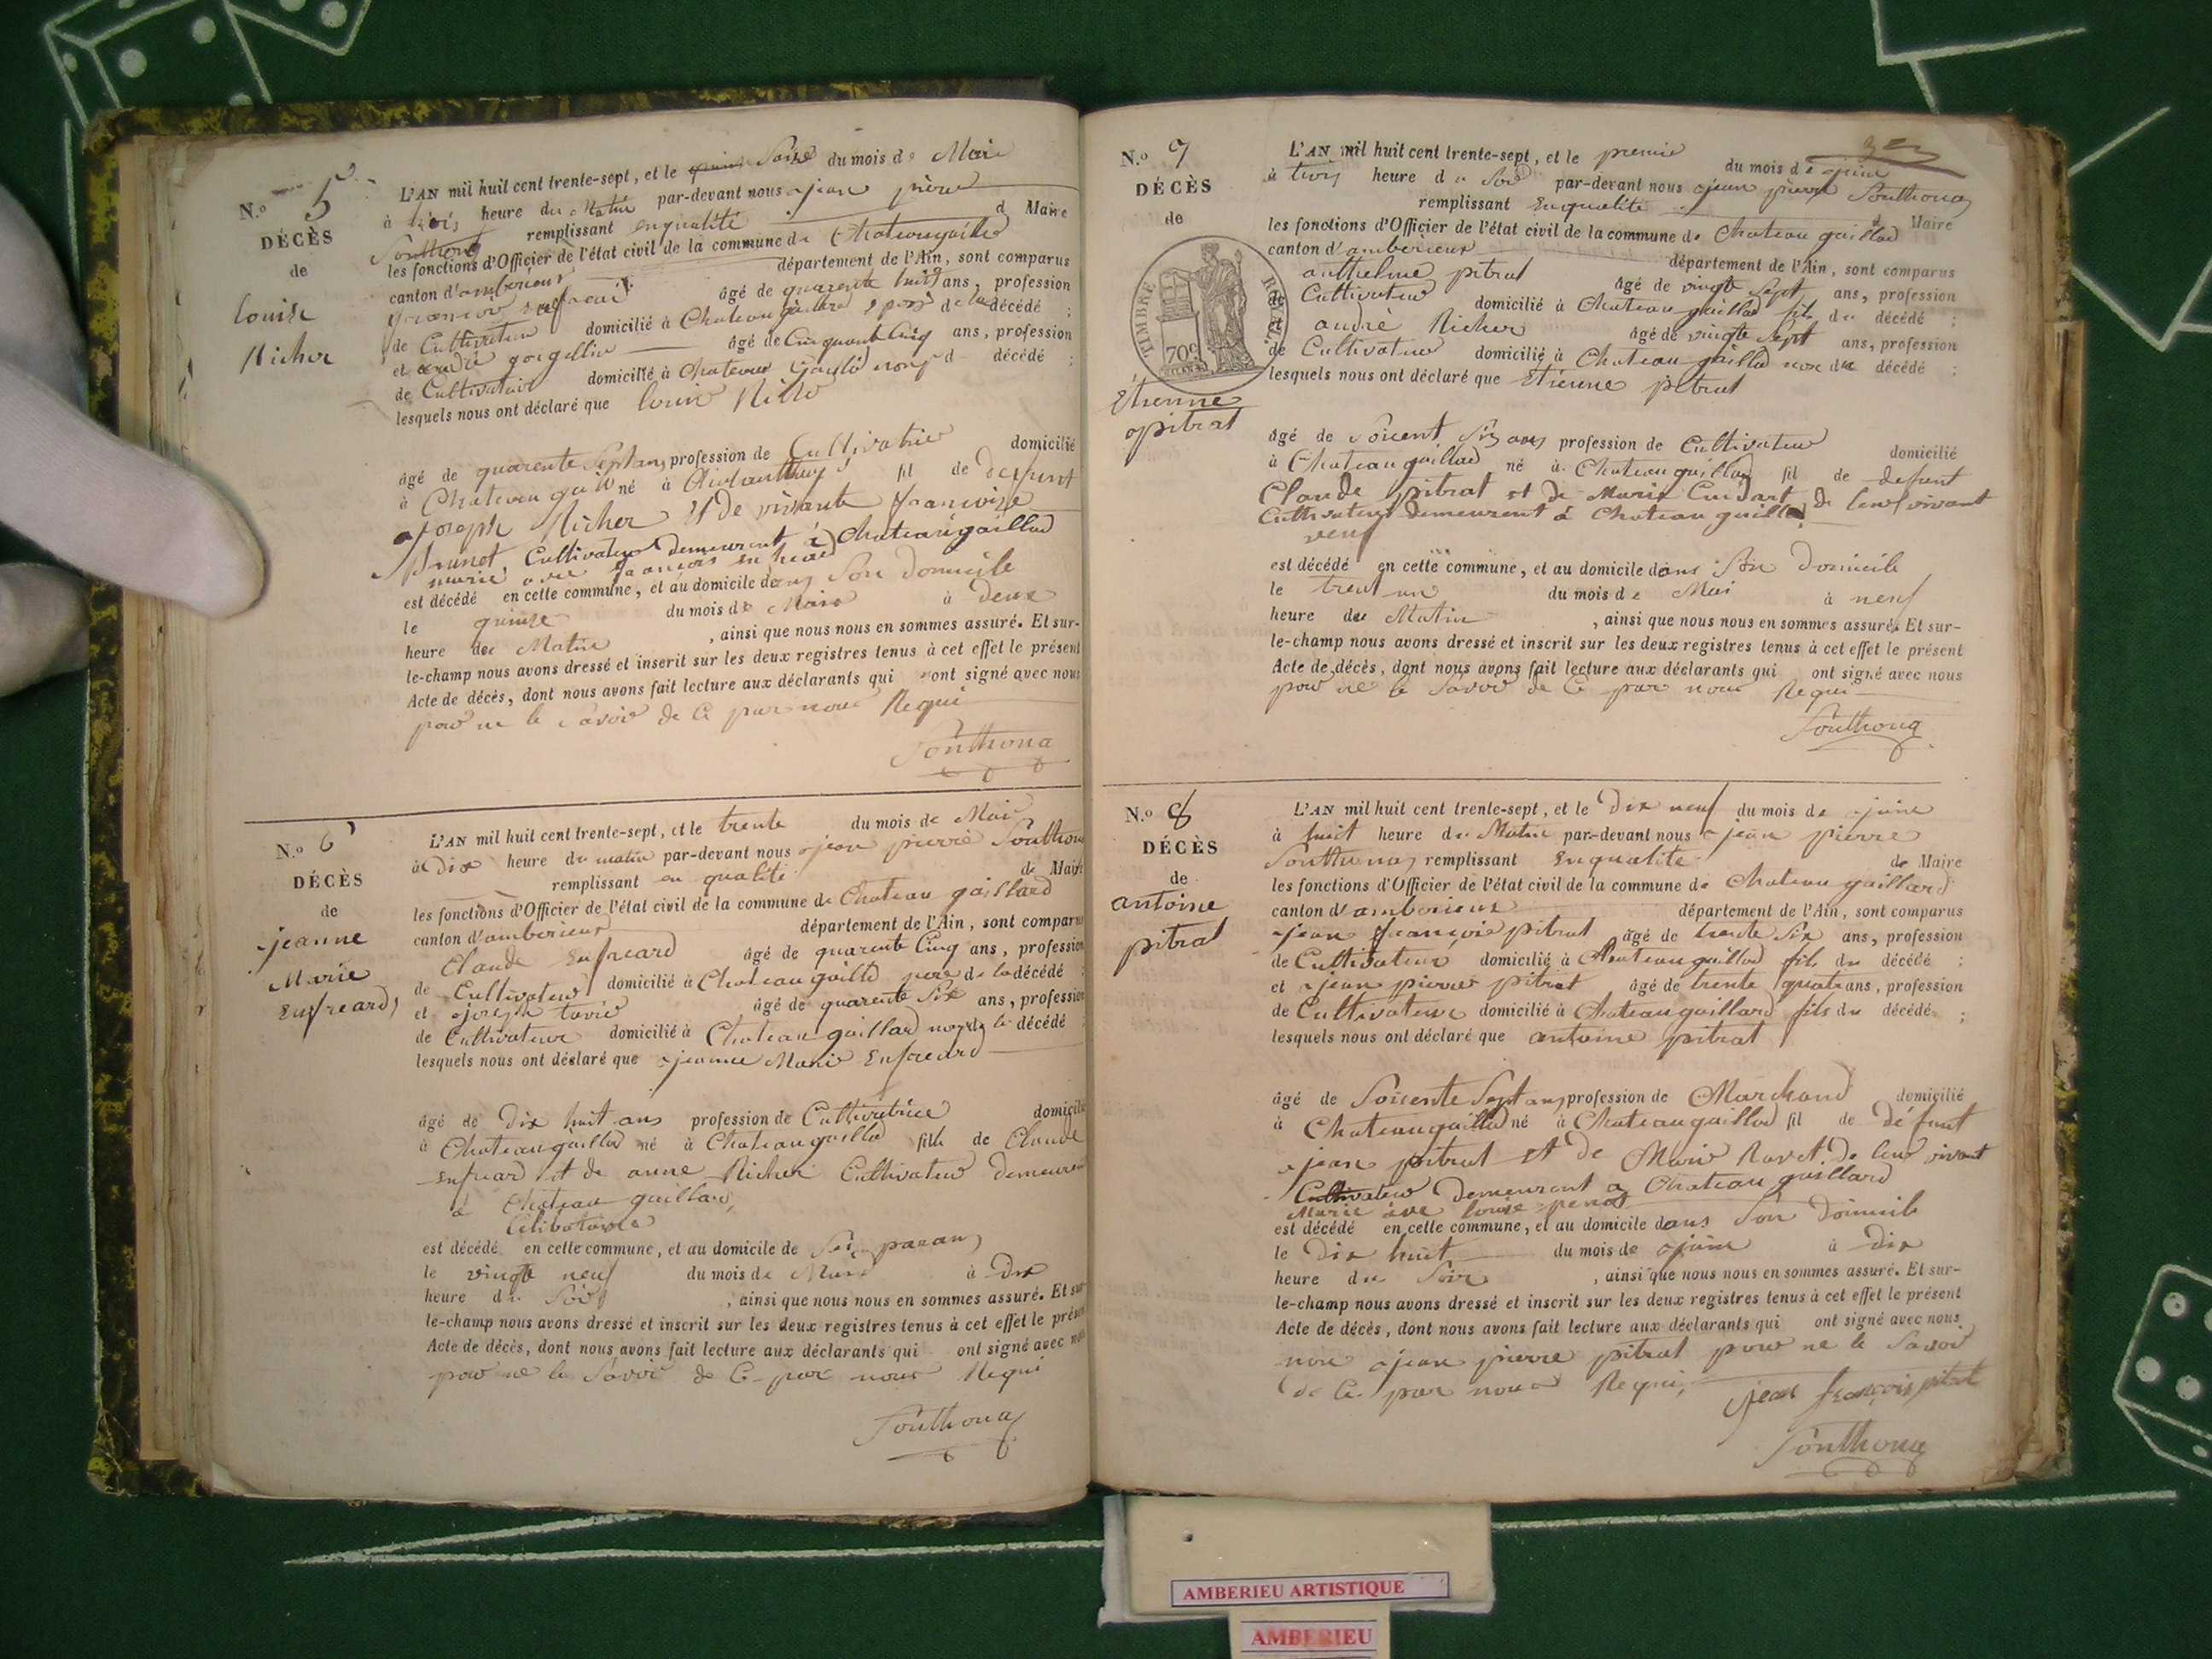 N.o 5
DÉCÈS
de
louise
Richer
L'AN mil huit cent trente-sept, et le Saize du mois de Mai
à trois heure du Matin par-devant nous jean pierre
Southona remplissant enqualité d Maire
les fonctions d'Officier de l'état civil de la commune de Chateaugaillard
canton d'amberieux département de l'Ain, sont comparus
âgé de quarente huit ans, profession
de Cultivateur domicilié à Chateaugaillard de la décédé ;
et andré âgé de Cinquante Cinq ans, profession
de Cultivateur domicilié à Chateau Gaillard d décédé ;
lesquels nous ont déclaré que louise Richer
âgé de quarente Sept ans profession de Cultivatrice domicilié
à Chateau gaill né à fil de deffunt
joseph Richer et de vivante francoise
Brunet, Cultivateur demeurent à Chateaugaillard
marié avec francois
est décédé en cette commune, et au domicile dans Son domicile
le quinze du mois de à deux
heure du Matin , ainsi que nous nous en sommes assuré. Et sur-
le-champ nous avons dressé et inscrit sur les deux registres tenus à cet effet le présent
Acte de décès, dont nous avons fait lecture aux déclarants qui ont signé avec nous
pour ne le Savoir de Ce par nous Requi
Southona
N.o 6
DÉCÈS
de
jeanne
Marie
Enfreard
L'AN mil huit cent trente-sept, et le trente du mois de Mai
à Dix heure du matin par-devant nous jean pierre Southona
remplissant en qualité de Maire
les fonctions d'Officier de l'état civil de la commune de Chateau gaillard
canton d'amberieux département de l'Ain, sont comparus
Claude Enfreard âgé de quarente Cinq ans, profession
de Cultivateur domicilié à Chateaugaillard pere de la décédé ;
et joseph âgé de quarente Six ans, profession
de Cultivateur domicilié à Chateau gaillard décédé ;
lesquels nous ont déclaré que jeanne Marie Enfreard
âgé de Dix huit ans profession de Cultivatrice domicilié
à Chateaugaillard né à Chateaugaillard fille de Claude
Enfreard et de anne Richer Cultivateur demeurent
à Chateau gaillard,
Celibataire
est décédé en cette commune, et au domicile de Ses parans
le vingt neuf du mois de à Dix
heure du Soir , ainsi que nous nous en sommes assuré. Et sur-
le-champ nous avons dressé et inscrit sur les deux registres tenus à cet effet le présent
Acte de décès, dont nous avons fait lecture aux déclarants qui ont signé avec nous
pour ne le Savoir de Ce par nous Requi
Southona
N.o 7
DÉCÈS
de
TIMBRE ROYAL
70c
Etienne
pitrat
L'AN mil huit cent trente-sept, et le premier du mois de juin
à trois heure du Soir par-devant nous jean pierre Southona
remplissant Enqualité d Maire
les fonctions d'Officier de l'état civil de la commune de Chateau gaillard
canton d'amberieux département de l'Ain, sont comparus
anthelme pitrat âgé de vingt Sept ans, profession
de Cultivateur domicilié à Chateau gaillard fils du décédé ;
et andré Richer âgé de vingte Sept ans, profession
de Cultivateur domicilié à Chateau gaillard décédé ;
lesquels nous ont déclaré que Etienne pitrat
âgé de Soicent Six ans profession de Cultivateur domicilié
à Chateaugaillard né à Chateaugaillard fil de defunt
Claude pitrat et de Marie Cudart de leur vivant
Cultivateur demeurent à Chateau gaillard
veuf
est décédé en cette commune, et au domicile dans Son Domicile
le trent un du mois de Mai à neuf
heure du Matin , ainsi que nous nous en sommes assuré. Et sur-
le-champ nous avons dressé et inscrit sur les deux registres tenus à cet effet le présent
Acte de décès, dont nous avons fait lecture aux déclarants qui ont signé avec nous
pour ne le Savoir de Ce par nous Requi
Southona
N.o 8
DÉCÈS
de
antoine
pitrat
L'AN mil huit cent trente-sept, et le Dix neuf du mois de juin
à huit heure du Matin par-devant nous jean pierre
Southona remplissant Enqualité de Maire
les fonctions d'Officier de l'état civil de la commune de Chateau gaillard
canton d'amberieux département de l'Ain, sont comparus
jean françois pitrat âgé de trente Six ans, profession
de Cultivateur domicilié à Chateaugaillard fils du décédé ;
et jean pierre pitrat âgé de trente quatre ans, profession
de Cultivateur domicilié à Chateaugaillard fils du décédé ;
lesquels nous ont déclaré que antoine pitrat
âgé de Soicente Sept ans profession de Marchand domicilié
à Chateaugaillard né à Chateaugaillard fil de défunt
jean pitrat et de Marie Ravet de leur vivant
Cultivateur demeurent a Chateau gaillard
Marié avec louise
est décédé en cette commune, et au domicile dans Son Domicile
le Dix huit du mois de juin à Dix
heure du Soir , ainsi que nous nous en sommes assuré. Et sur-
le-champ nous avons dressé et inscrit sur les deux registres tenus à cet effet le présent
Acte de décès, dont nous avons fait lecture aux déclarants qui ont signé avec nous
non jean pierre pitrat pour ne le Savoir
de Ce par nous Requi, jean françois pitrat
Southona
AMBERIEU ARTISTIQUE
AMBERIEU